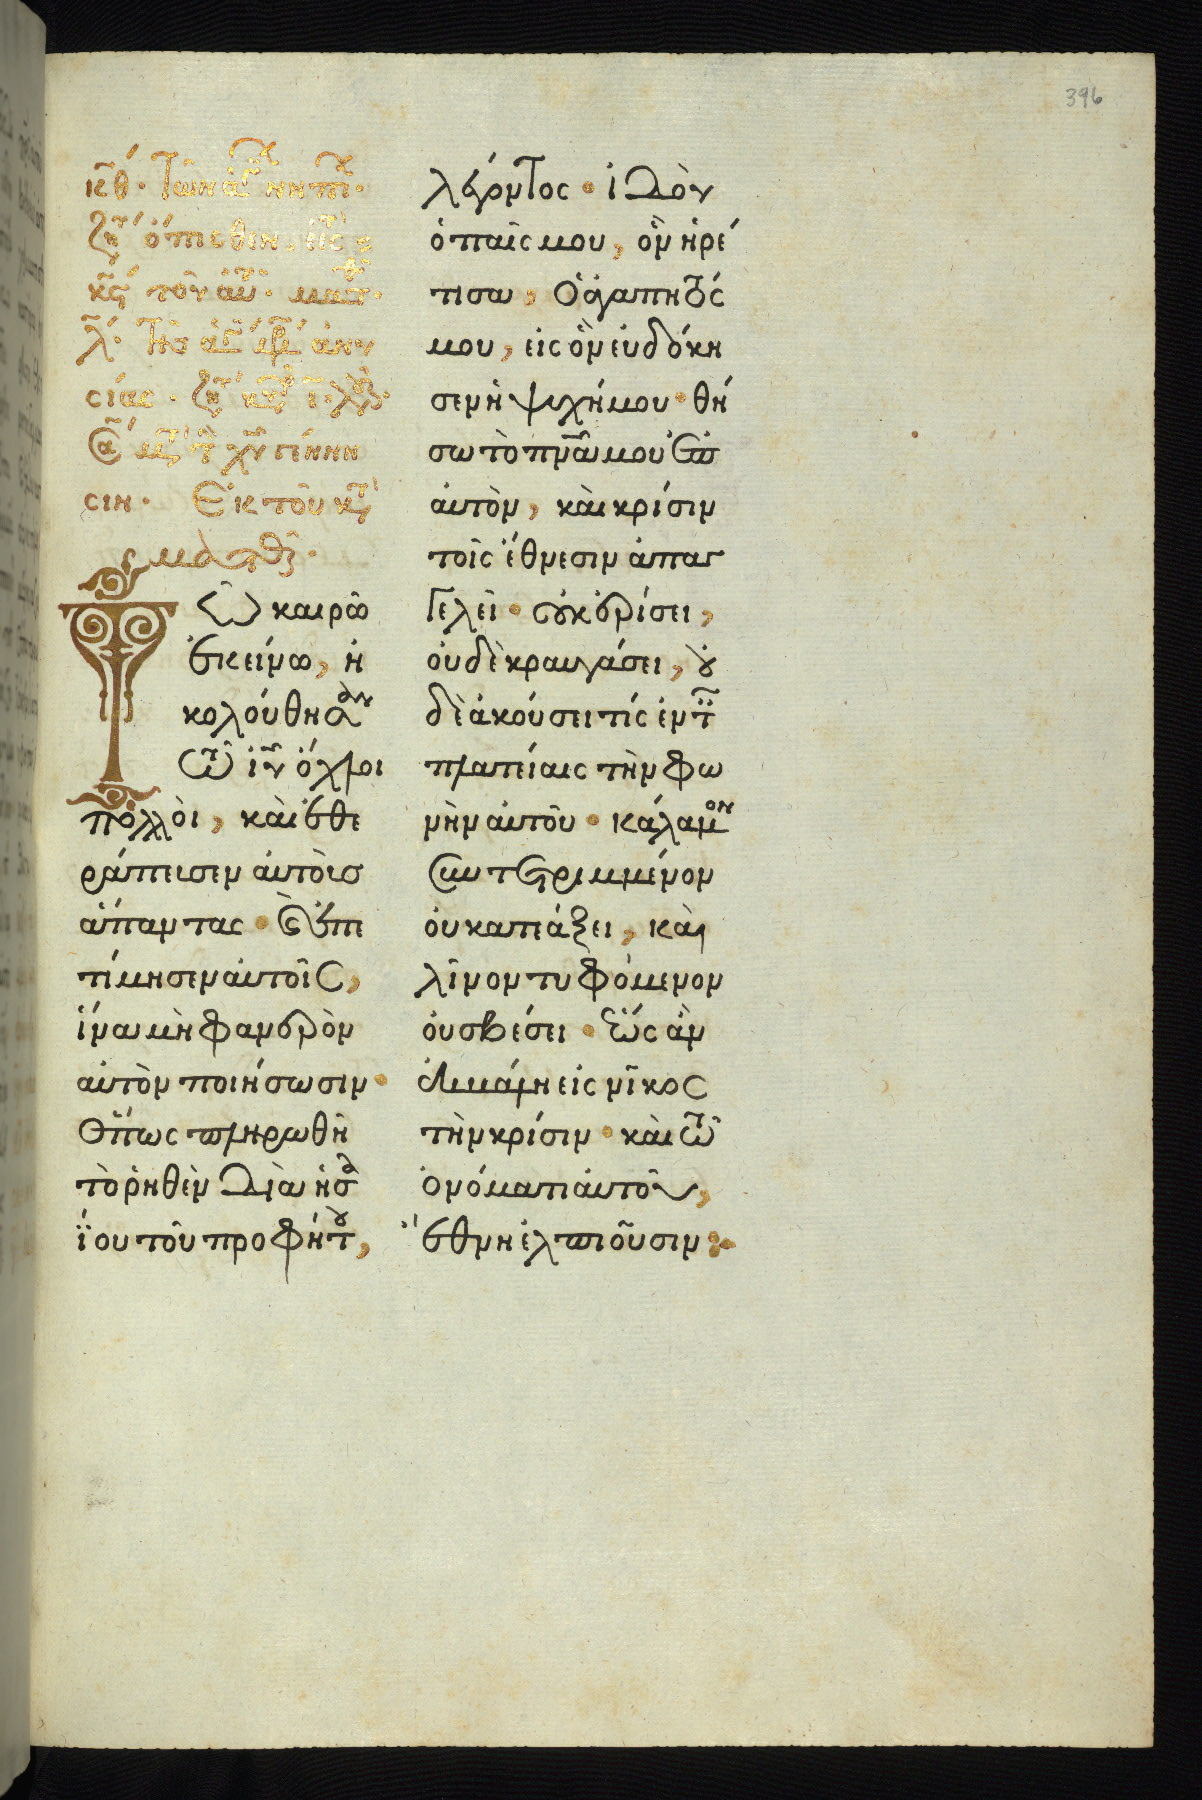 396
κθ΄· Τῶν ἁγ νηπι·
ζη ὄπισθεν εἰς
κς τὸν αυ· ματ·
λ΄· Τῆς ἁγ μρ ἀνυ
σίας · ζη
Σα με τ χυ γέννη
σιν · Ἐκ τοῦ κτ
ματθ·
Τῶ καιρῶ
ἐκείνω, ἠ
κολούθησαν
τῶ ιυ ὄχλοι
πολλοὶ, καὶ ἐθε
ράπευσεν αὐτοὺσ
ἅπαντας · καὶ ἐπε
τίμησεν αὐτοῖς,
ἵνα μὴ φανερὸν
αὐτὸν ποιήσωσιν ·
Ὅπως πληρωθῆ
τὸ ῥηθὲν διὰ ἡσα
ΐου τοῦ προφήτου,
λέγοντος · ἰδοὺ
ὁ παῖς μου, ὃν ἡρέ
τισα, Ὁ ἀγαπητός
μου, εἰς ὃν εὐδόκη
σεν ἡ ψυχή μου · θή
σω τὸ πνα μου ἐπ
αὐτὸν, καὶ κρίσιν
τοῖς ἔθνεσιν ἀπαγ
γελεῖ · οὐκ ἐρίσει,
οὐδὲ κραυγάσει, οὐ
δὲ ἀκούσει τίς ἐν τ
πλατείαις τὴν φω
νὴν αὐτοῦ · κάλαμον
συντετριμμένον
οὐ κατεάξει, καὶ
λῖνον τυφόμενον
οὐ σβέσει · ἕως ἂν
ἐκβάλη εἰς νῖκος
τὴν κρίσιν · καὶ τῶ
ὀνόματι αὐτοῦ,
ἔθνη ἐλπιοῦσιν :·